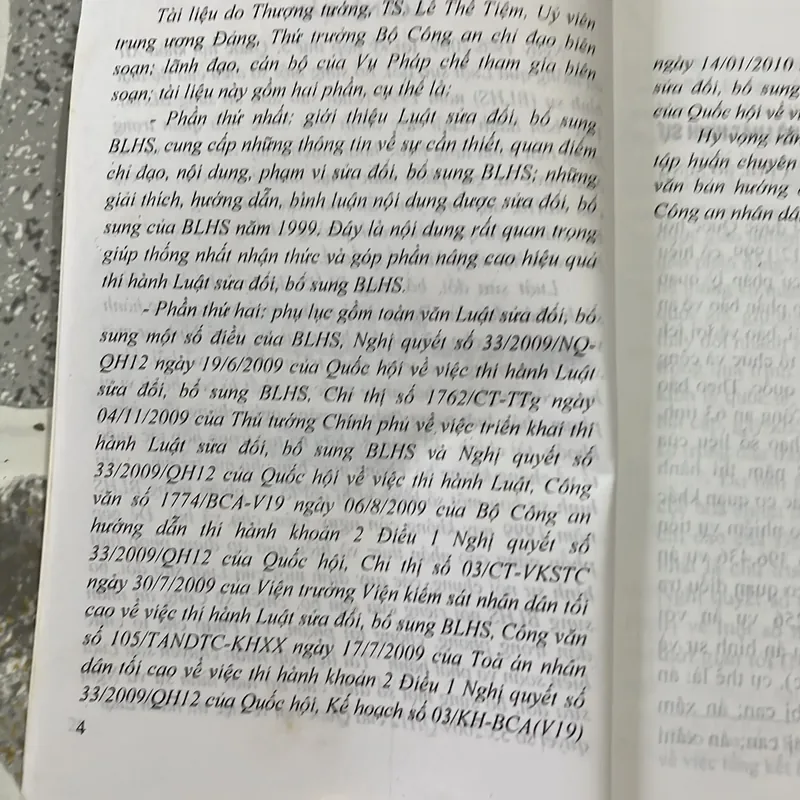 Tài liệu do Thượng tướng, TS. Lê Thế Tiệm, Uỷ viên
trung ương Đảng, Thứ trưởng Bộ Công an chỉ đạo biên
soạn; lãnh đạo, cán bộ của Vụ Pháp chế tham gia biên
soạn; tài liệu này gồm hai phần, cụ thể là:
- Phần thứ nhất: giới thiệu Luật sửa đổi, bổ sung
BLHS, cung cấp những thông tin về sự cần thiết, quan điểm
chỉ đạo, nội dung, phạm vi sửa đổi, bổ sung BLHS; những
giải thích, hướng dẫn, bình luận nội dung được sửa đổi, bổ
sung của BLHS năm 1999. Đây là nội dung rất quan trọng
giúp thống nhất nhận thức và góp phần nâng cao hiệu quả
thi hành Luật sửa đổi, bổ sung BLHS.
- Phần thứ hai: phụ lục gồm toàn văn Luật sửa đổi, bổ
sung một số điều của BLHS, Nghị quyết số 33/2009/NQ-
QH12 ngày 19/6/2009 của Quốc hội về việc thi hành Luật
sửa đổi, bổ sung BLHS, Chỉ thị số 1762/CT-TTg ngày
04/11/2009 của Thủ tướng Chính phủ về việc triển khai thi
hành Luật sửa đổi, bổ sung BLHS và Nghị quyết số
33/2009/QH12 của Quốc hội về việc thi hành Luật, Công
văn số 1774/BCA-V19 ngày 06/8/2009 của Bộ Công an
hướng dẫn thi hành khoản 2 Điều 1 Nghị quyết số
33/2009/QH12 của Quốc hội, Chỉ thị số 03/CT-VKSTC
ngày 30/7/2009 của Viện trưởng Viện kiểm sát nhân dân tối
cao về việc thi hành Luật sửa đổi, bổ sung BLHS, Công văn
số 105/TANDTC-KHXX ngày 17/7/2009 của Toà án nhân
dân tối cao về việc thi hành khoản 2 Điều 1 Nghị quyết số
33/2009/QH12 của Quốc hội, Kế hoạch số 03/KH-BCA(V19)
4
ngày 14/01/2010
sửa đổi, bổ sung
của Quốc hội về
Hy vọng rằn
tập huấn chuyên
văn bản hướng
Công an nhân dâ